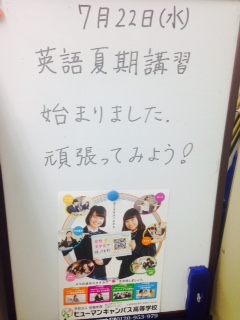 7月22日(水)
英語夏期講習
始まりました.
頑張ってみよう!
ヒューマンキャンパス高等学校
0120-953-979